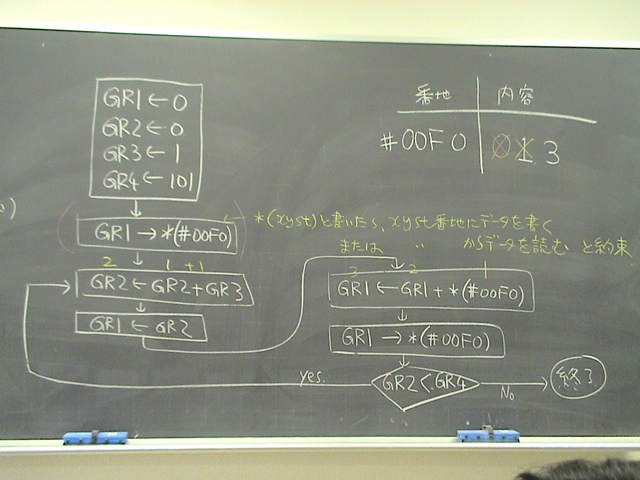 GR1←0
GR2←0
GR3←1
GR4←101
番地 内容
#00F0 0 1 3
GR1→*(#00F0)
*(xyst)と書いたら、xyst番地にデータを書く
または 〃 からデータを読む と約束
2 1 +1
GR2←GR2+GR3
GR1←GR2
3 2 1
GR1←GR1+*(#00F0)
GR1→*(#00F0)
GR2<GR4
yes.
No
終了